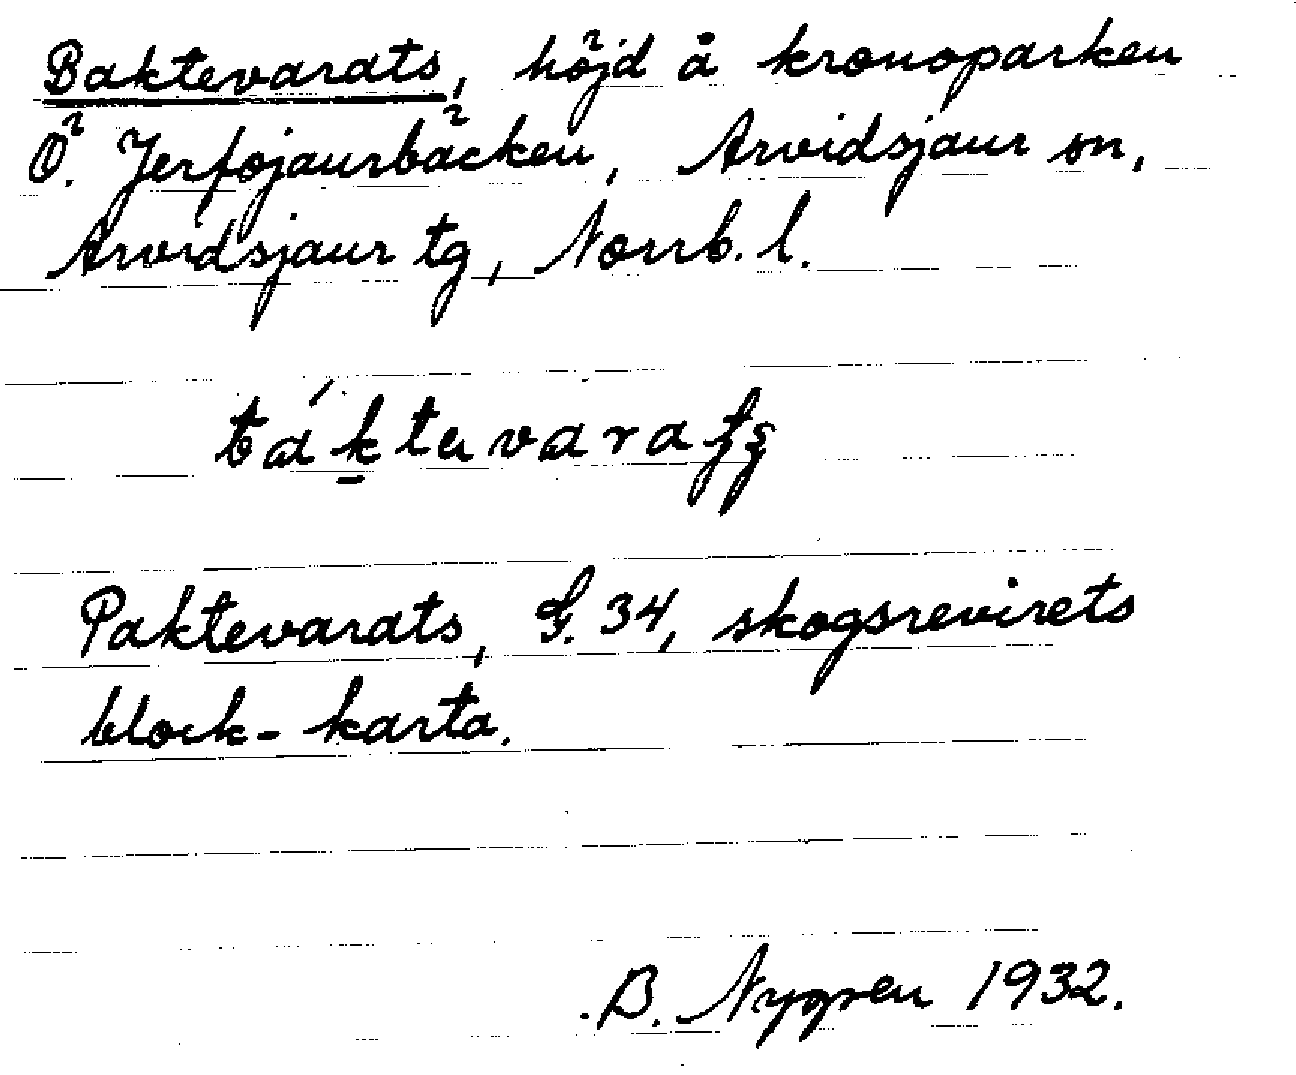 Baktevarats, höjd å kronoparken
Ö. Jerfojaurbäcken, Arvidsjaur sn,
Arvidsjaur tg, Norrb. l.
Paktevarats, G. 34, skogsrevirets
block-karta.
B. Nygren 1932.